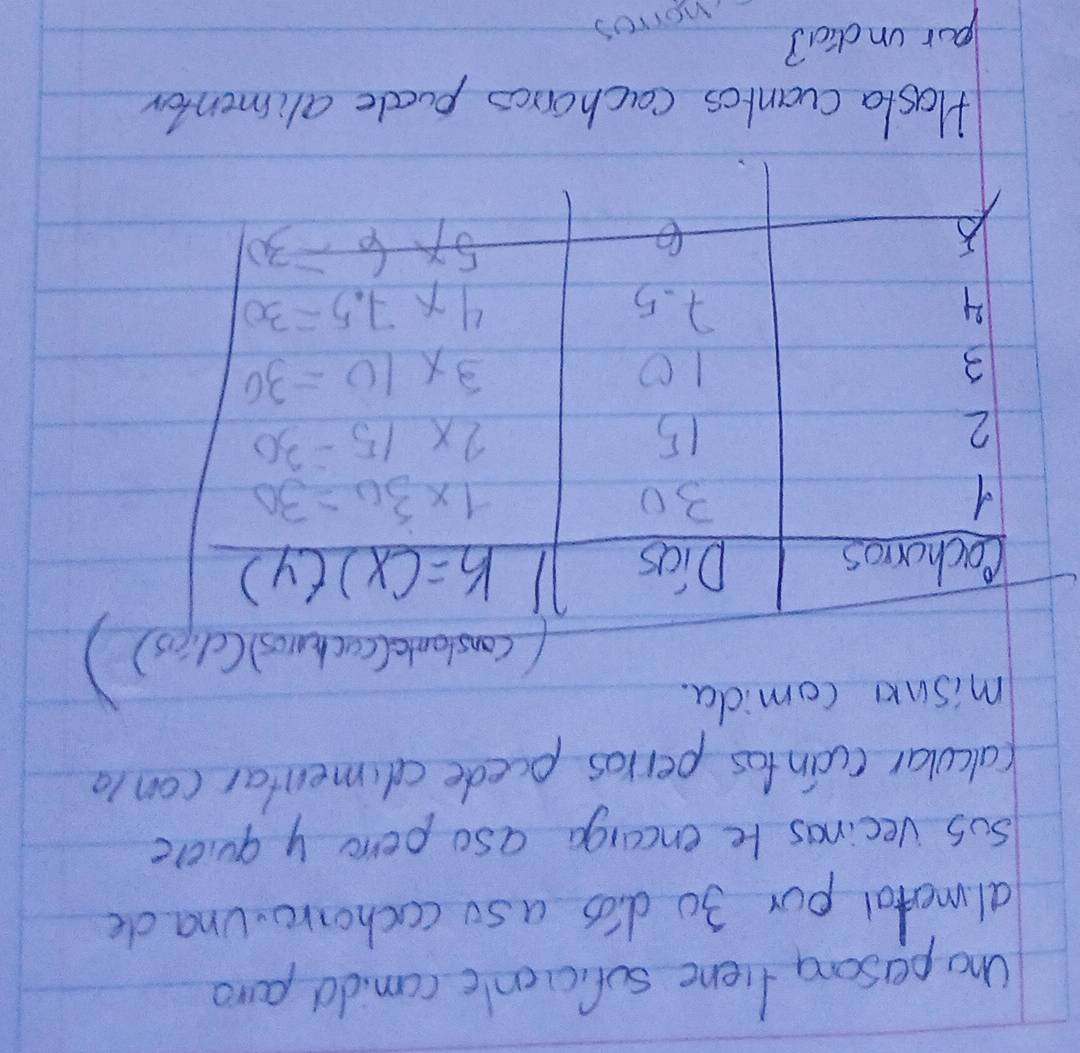 Una persona tiene suficiente comida para
alimental por 30 días a su cachorro. una de
sus vecinas le encarga a su perro y quiere
calcular cuántos perros puede alimentar con la
misma comida.
(constante(cachorros)(días))
Cachorros Días K=(x)(y)
1 30 1x30=30
2 15 2x 15=30
3 10 3x 10=30
4 7.5 4x 7.5=30
5 6 5x 6=30
Hasta cuantos cachorros puede alimentar
por un día?